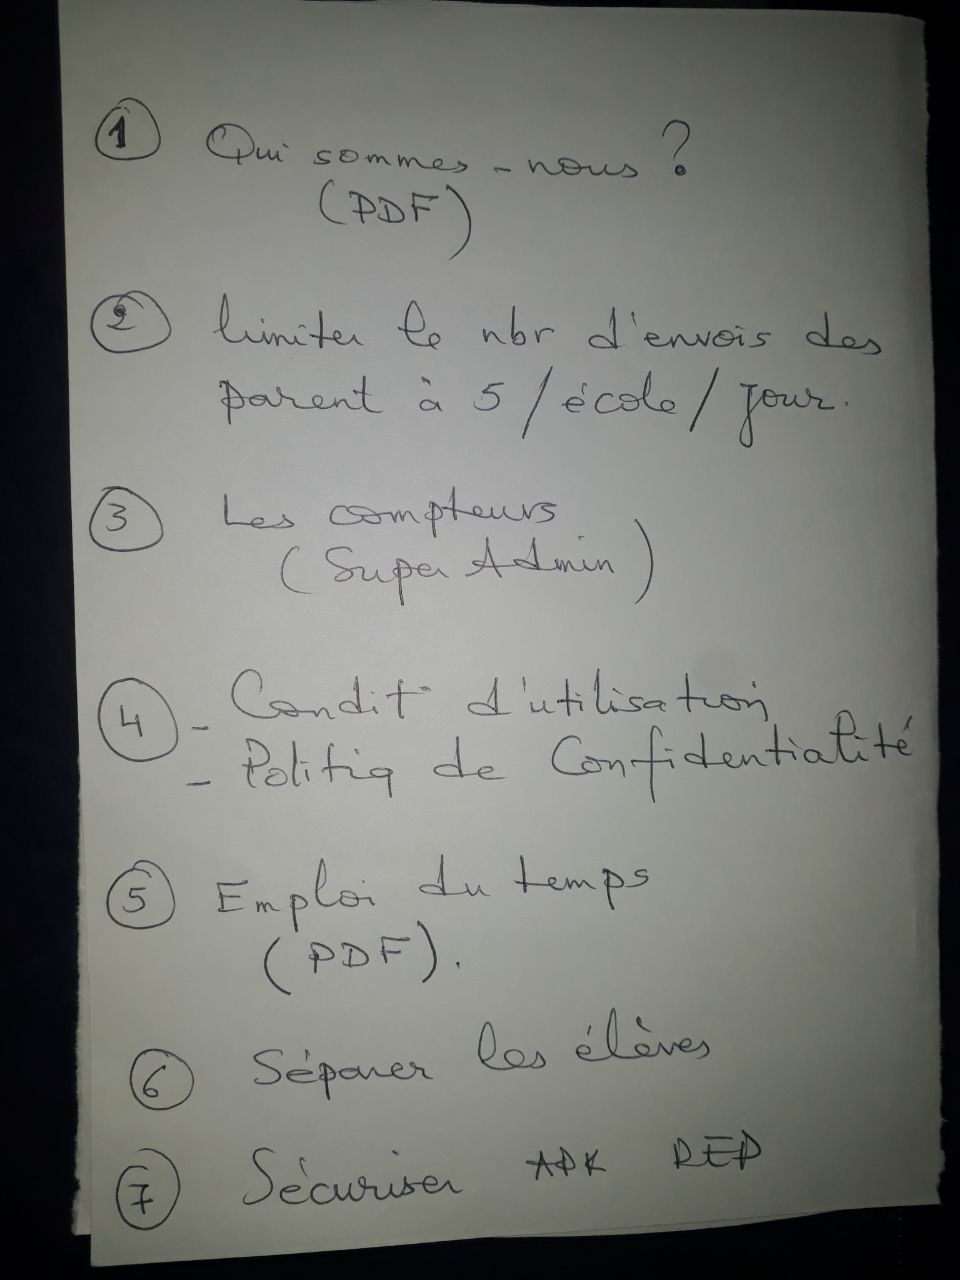 1 Qui sommes-nous ?
(PDF)
2 limiter le nbr d'envois des
parent à 5 / école / jour.
3 Les compteurs
(Super Admin)
4 - Condit° d'utilisation
- Politiq de Confidentialité
5 Emploi du temps
(PDF).
6 Séparer les élèves
7 Sécuriser APK